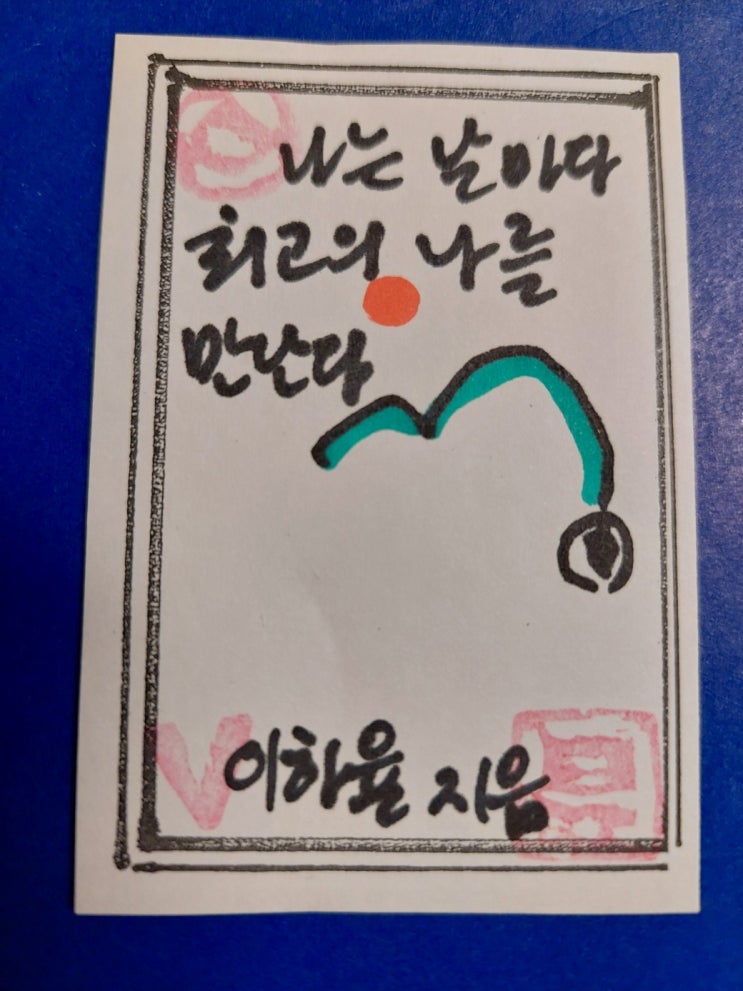 나는 날마다
최고의 나를
만난다
이하율 지음